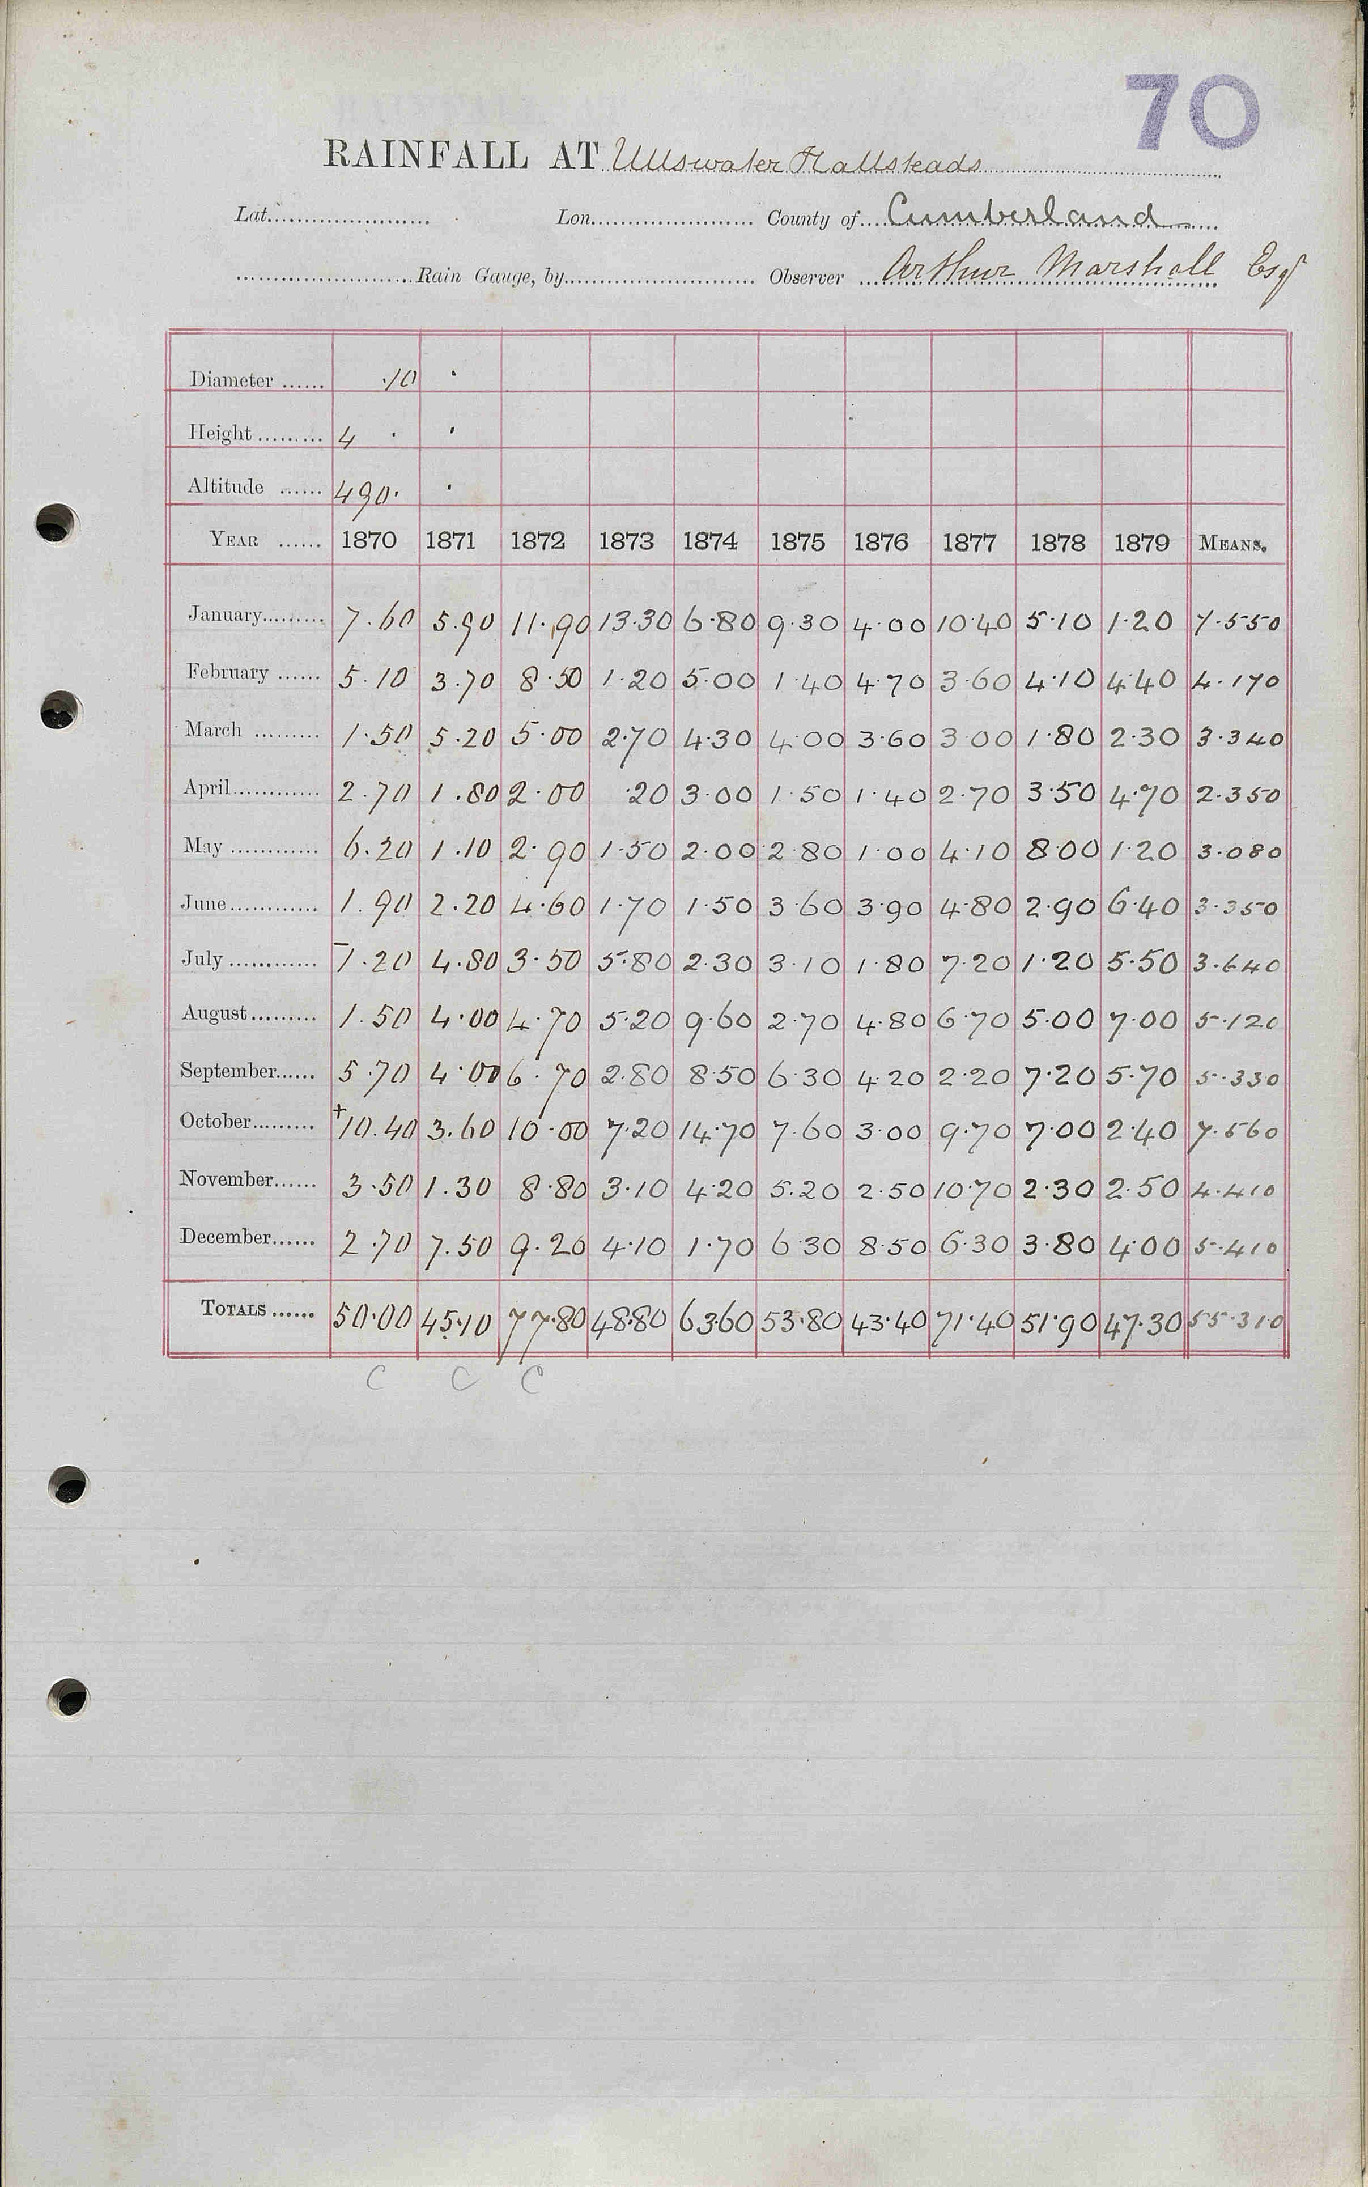 70
RAINFALL AT Ullswater Hallsteads
Lat. Lon. County of Cumberland
Rain Gauge, by Observer Arthur Marshall Esqr
Diameter ...... .10
Height ......... 4
Altitude ...... 490.
YEAR ...... 1870 1871 1872 1873 1874 1875 1876 1877 1878 1879 MEANS.
January......... 7.60 5.90 11.90 13.30 6.80 9.30 4.00 10.40 5.10 1.20 7.550
February ...... 5.10 3.70 8.50 1.20 5.00 1.40 4.70 3.60 4.10 4.40 4.170
March ......... 1.50 5.20 5.00 2.70 4.30 4.00 3.60 3.00 1.80 2.30 3.340
April............ 2.70 1.80 2.00 .20 3.00 1.50 1.40 2.70 3.50 4.70 2.350
May ............ 6.20 1.10 2.90 1.50 2.00 2.80 1.00 4.10 8.00 1.20 3.080
June............ 1.90 2.20 4.60 1.70 1.50 3.60 3.90 4.80 2.90 6.40 3.350
July ............ 1.20 4.80 3.50 5.80 2.30 3.10 1.80 7.20 1.20 5.50 3.640
August......... 1.50 4.00 4.70 5.20 9.60 2.70 4.80 6.70 5.00 7.00 5.120
September...... 5.70 4.00 6.70 2.80 8.50 6.30 4.20 2.20 7.20 5.70 5.330
October......... +10.40 3.60 10.00 7.20 14.70 7.60 3.00 9.70 7.00 2.40 7.560
November...... 3.50 1.30 8.80 3.10 4.20 5.20 2.50 10.70 2.30 2.50 4.410
December...... 2.70 7.50 9.20 4.10 1.70 6.30 8.50 6.30 3.80 4.00 5.410
TOTALS ...... 50.00 45.10 77.80 48.80 63.60 53.80 43.40 71.40 51.90 47.30 55.310
C C C